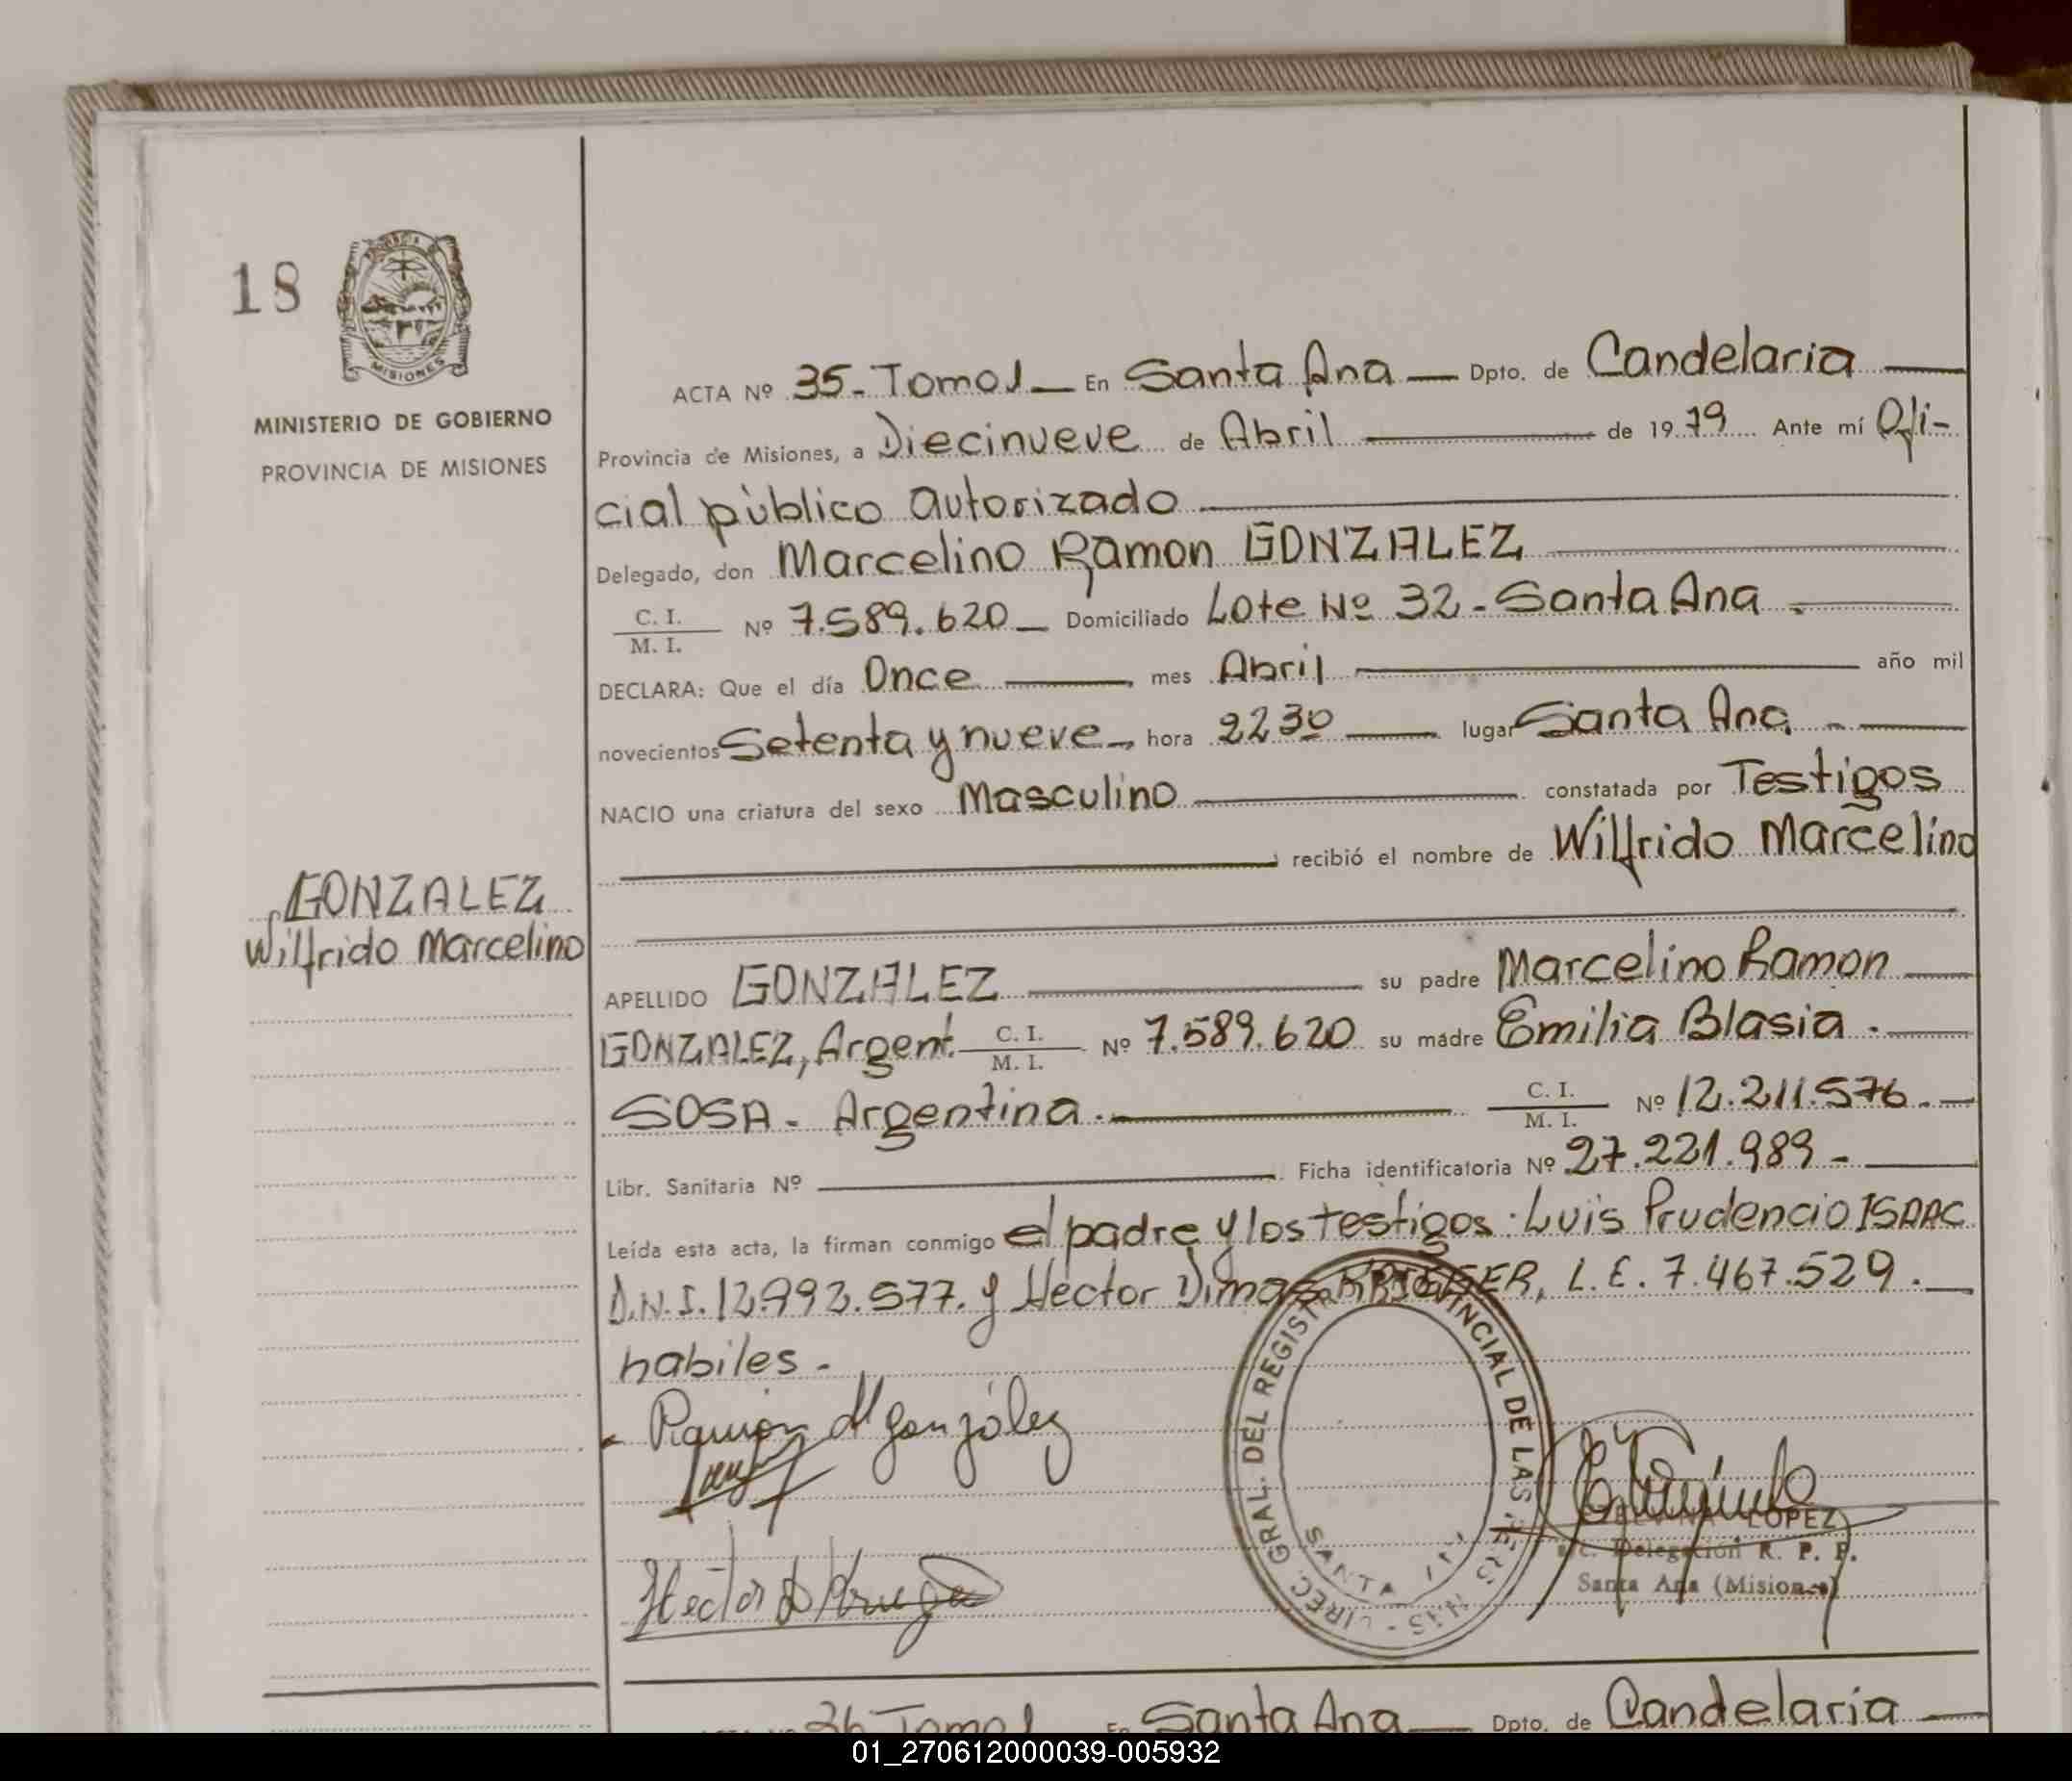 18
MISIONES
MINISTERIO DE GOBIERNO
PROVINCIA DE MISIONES
GONZALEZ
Wilfrido Marcelino
ACTA Nº 35-Tomo1 — En Santa Ana — Dpto. de Candelaria —
Provincia de Misiones, a Diecinueve de Abril — de 1979 Ante mí Ofi-
cial público autorizado —
Delegado, don Marcelino Ramon GONZALEZ
C. I. / M. I. Nº 7.589.620 — Domiciliado Lote Nº 32 - Santa Ana . —
DECLARA: Que el día Once — mes Abril — año mil
novecientos Setenta y nueve —, hora 22 30 — lugar Santa Ana —
NACIO una criatura del sexo Masculino — constatada por Testigos
— recibió el nombre de Wilfrido Marcelino
APELLIDO GONZALEZ — su padre Marcelino Ramon —
GONZALEZ, Argent. C. I. / M. I. Nº 7.589.620 su madre Emilia Blasia . —
SOSA - Argentina . — C. I. / M. I. Nº 12.211.576 . —
Libr. Sanitaria Nº — Ficha identificatoria Nº 27.221.989 - —
Leída esta acta, la firman conmigo el padre y los testigos : Luis Prudencio ISAAC
D.N.I. 12.992.577. y Hector Dimas LE. 7.467.529 . —
habiles -
Ramón M González
Hector D Kruger
DIREC. GRAL. DEL REGISTRO PROVINCIAL DE LAS PERSONAS - MIS
SANTA ANA
LOPEZ
Delegación R. P. P.
Santa Ana (Misiones)
36 Tomo1 En Santa Ana — Dpto. de Candelaria —
01_270612000039-005932